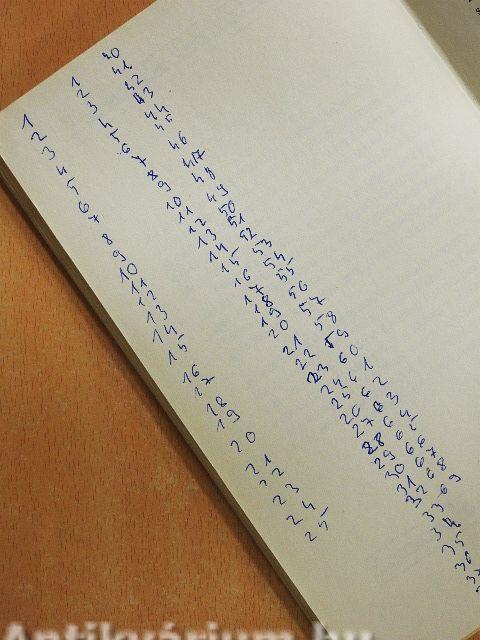 1
2
3
4
5
6
7
8
9
10
11
12
13
14
15
16
17
18
19
20
21
22
23
24
25
1
2
3
4
5
6
7
8
9
10
11
12
13
14
15
16
17
18
19
20
21
22
23
24
25
26
27
28
29
30
31
32
33
34
35
36
37
40
41
42
43
44
45
46
47
48
49
50
51
52
53
54
55
56
57
58
59
60
61
62
63
64
65
66
67
68
69
Antikvárium.hu